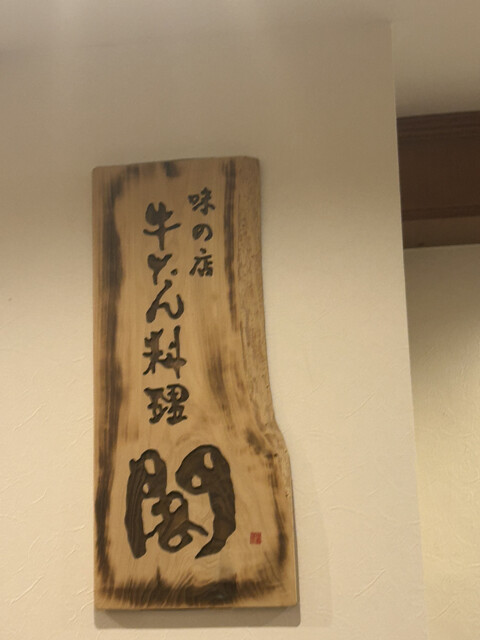 味の店
牛たん料理
閣